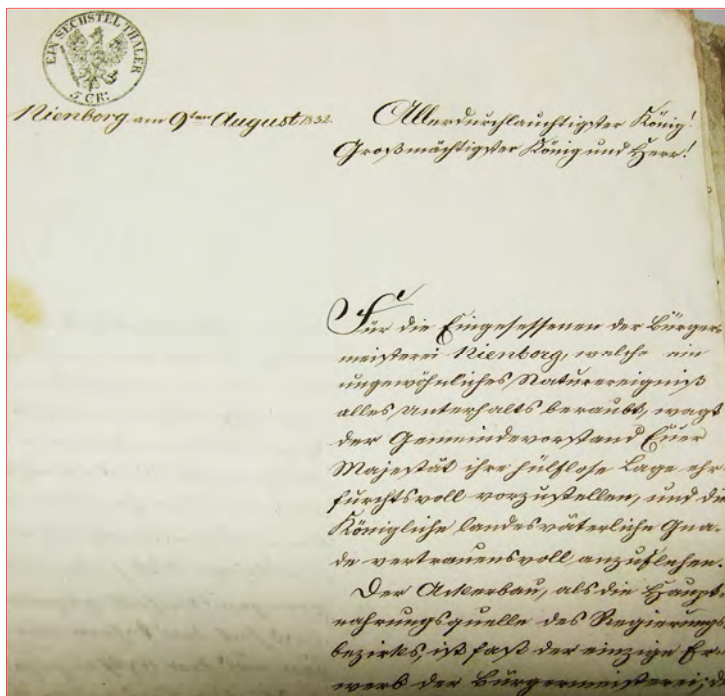 EIN SECHSTEL THALER
5 GR:
Nienborg am 9ten August 1832.
Allerdurchlauchtigster König!
Großmächtigster König und Herr!
Für die Eingesessenen der Bürger-
meisterei Nienborg, welche ein
ungewöhnliches Naturereigniß
alles Unterhalts beraubt, wagt
der Gemeindevorstand Euer
Majestät ihre hülflose Lage ehr-
furchtsvoll vorzustellen, und die
Königliche landesväterliche Gna-
de vertrauensvoll anzuflehen.
Der Ackerbau, als die Haupt-
nahrungsquelle des Regierungs-
bezirks, ist fast der einzige Er-
werb der Bürgermeisterei;